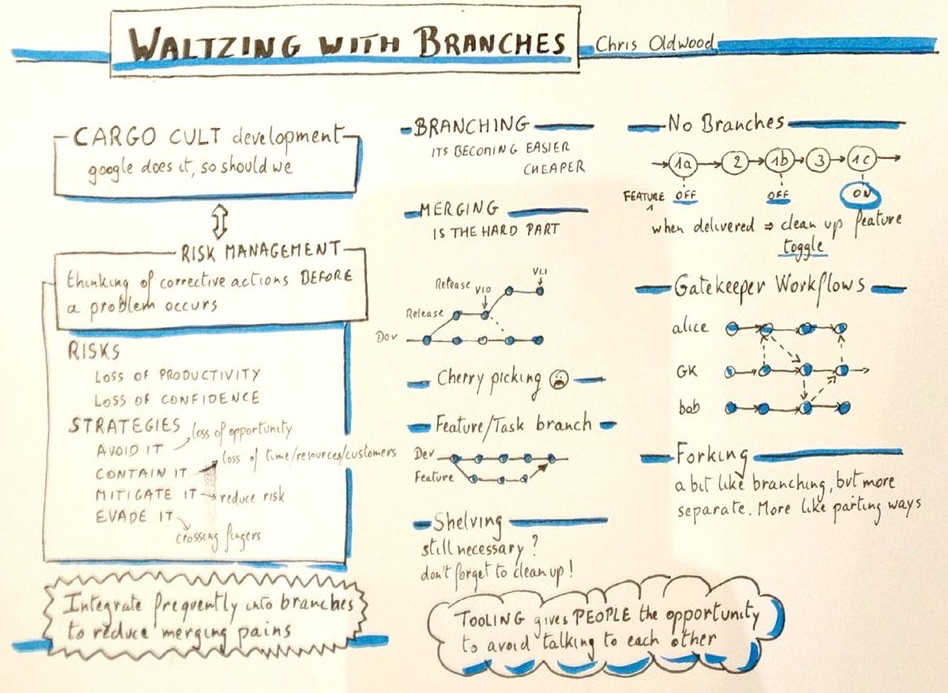 WALTZING WITH BRANCHES
Chris Oldwood
CARGO CULT development
google does it, so should we
RISK MANAGEMENT
thinking of corrective actions BEFORE
a problem occurs
RISKS
LOSS OF PRODUCTIVITY
LOSS OF CONFIDENCE
STRATEGIES
AVOID IT
loss of opportunity
CONTAIN IT
loss of time/resources/customers
MITIGATE IT
reduce risk
EVADE IT
crossing fingers
Integrate frequently into branches
to reduce merging pains
BRANCHING
ITS BECOMING EASIER
CHEAPER
MERGING
IS THE HARD PART
Release V1.0 V1.1
Release
Dev
Cherry picking
Feature/Task branch
Dev
Feature
Shelving
still necessary?
don't forget to clean up!
TOOLING gives PEOPLE the opportunity
to avoid talking to each other
No Branches
1a 2 1b 3 1c
FEATURE 1 OFF OFF ON
when delivered ⇒ clean up feature
toggle
Gatekeeper Workflows
alice
GK
bab
Forking
a bit like branching, but more
separate. More like parting ways